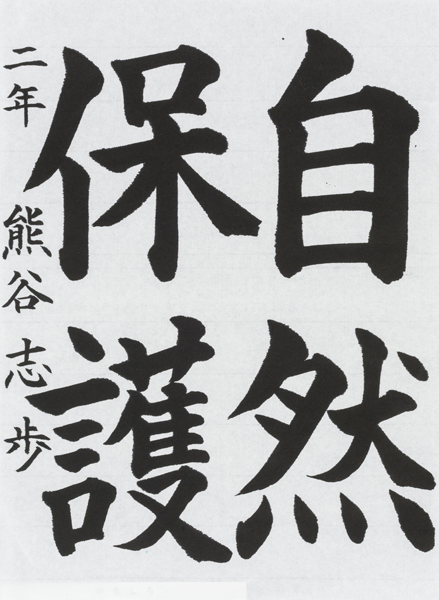 自然
保護
二年 熊谷志歩